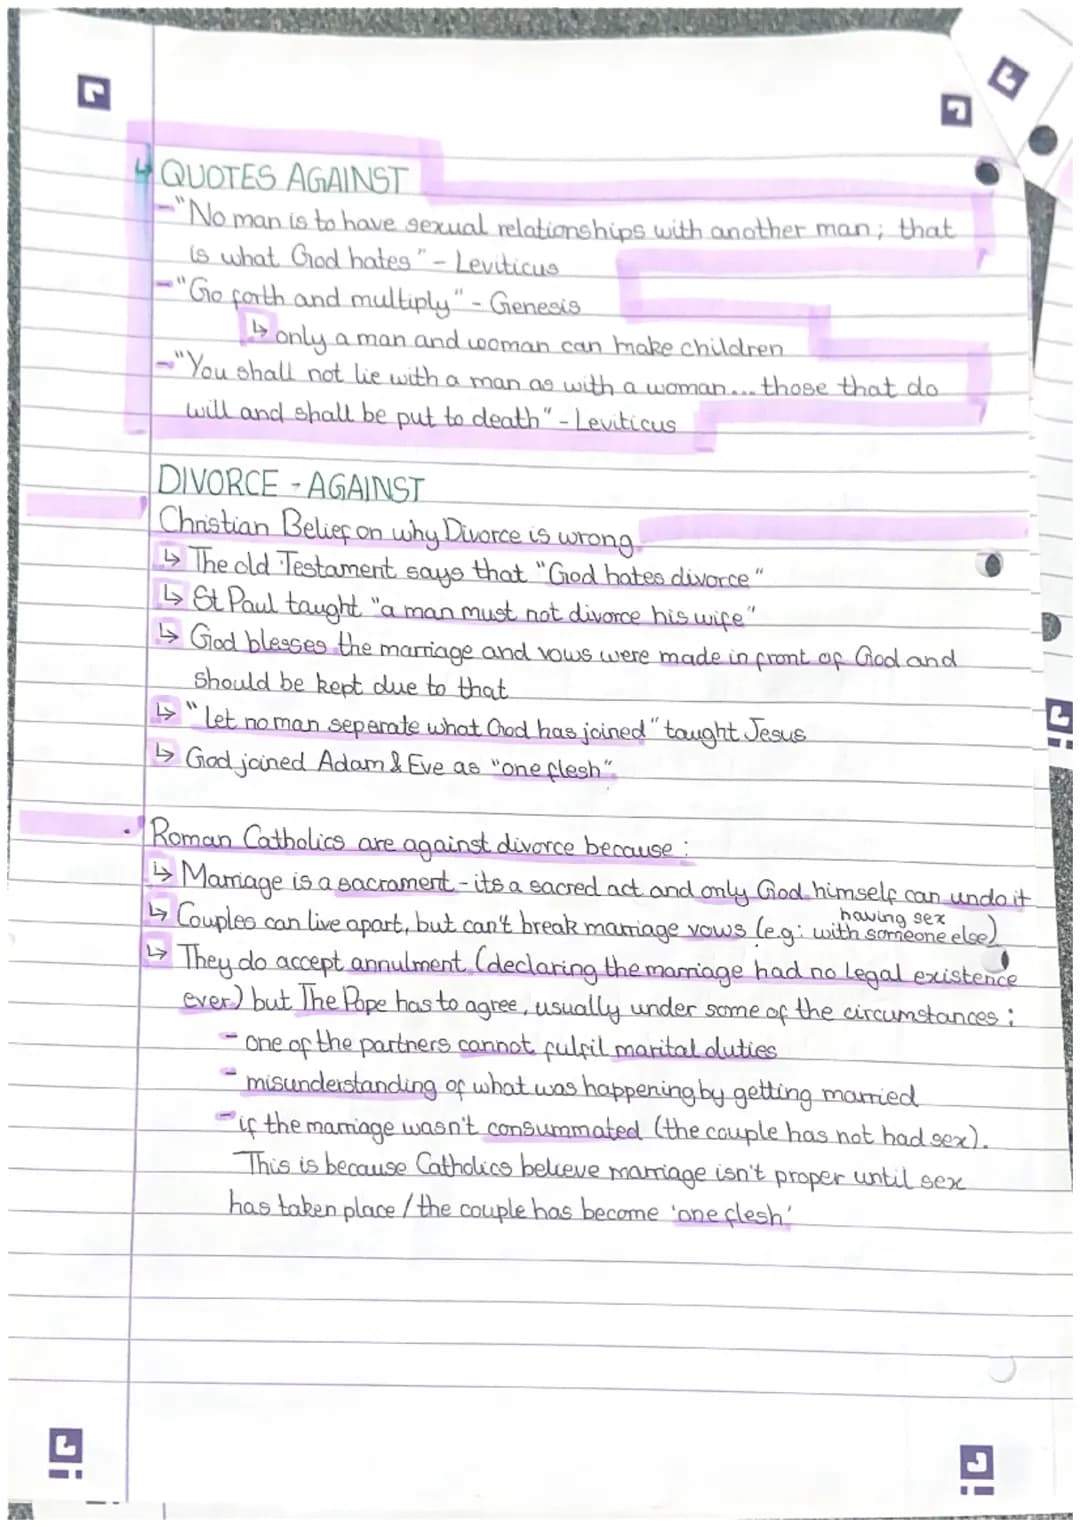 ↳ QUOTES AGAINST
- "No man is to have sexual relationships with another man; that
is what God hates" - Leviticus
- "Go forth and multiply" - Genesis
↳ only a man and woman can make children
- "You shall not lie with a man as with a woman... those that do
will and shall be put to death" - Leviticus
DIVORCE - AGAINST
Christian Belief on why Divorce is wrong.
↳ The old Testament says that "God hates divorce"
↳ St Paul taught "a man must not divorce his wife"
↳ God blesses the marriage and vows were made in front of God and
should be kept due to that
↳ "let no man seperate what God has joined" taught Jesus
↳ God joined Adam & Eve as "one flesh".
• Roman Catholics are against divorce because:
↳ Marriage is a sacrament - its a sacred act and only God himself can undo it
having sex
↳ Couples can live apart, but can't break marriage vows (e.g: with someone else)
↳ They do accept annulment (declaring the marriage had no legal existence
ever) but The Pope has to agree, usually under some of the circumstances:
- one of the partners cannot fulfil marital duties
- misunderstanding of what was happening by getting married
- if the marriage wasn't consummated (the couple has not had sex).
This is because Catholics believe marriage isn't proper until sex
has taken place / the couple has become 'one flesh'